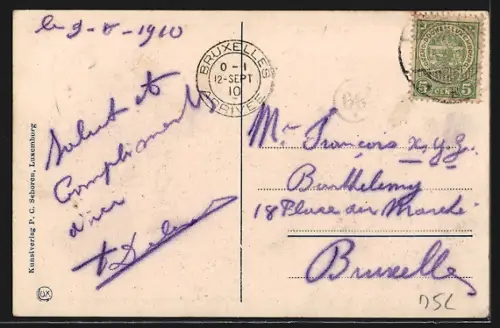 le 9-8-1910
Salut et
Compliments
d'ici
BRUXELLES
0-1
12-SEPT
10
ARRIVEE
5 CENT. 5
Mr. François x.y.z.
Barthelemy
18 Place du Marché
Bruxelles
DSL
Kunstverlag P. C. Schoren, Luxemburg